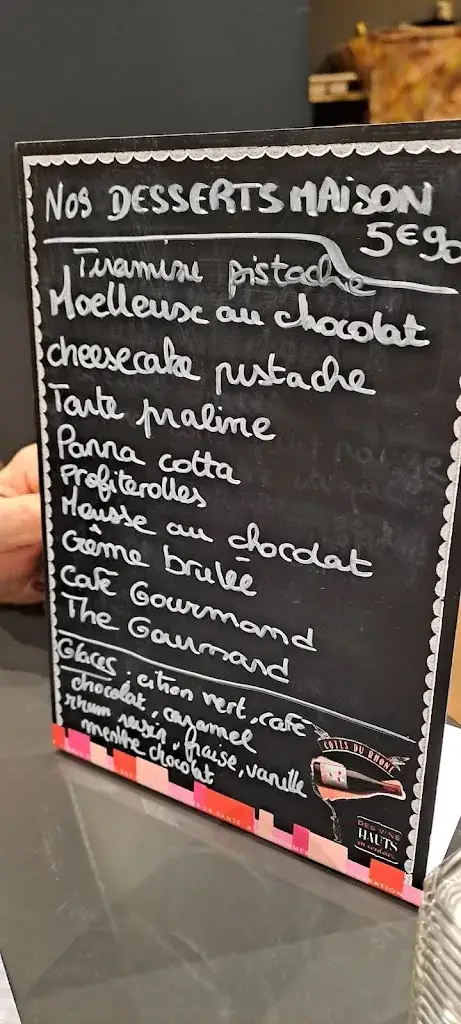 NOS DESSERTS MAISON
5€90
Tiramisu pistache
Moelleux au chocolat
cheesecake pistache
Tarte praline
Panna cotta
Profiterolles
Mousse au chocolat
Crême brulée
Café Gourmand
The Gourmand
Glaces : citron vert, café
chocolat, caramel
rhum raisin, fraise, vanille
menthe chocolat
CÔTES DU RHÔNE
DES VINS
HAUTS
en couleurs